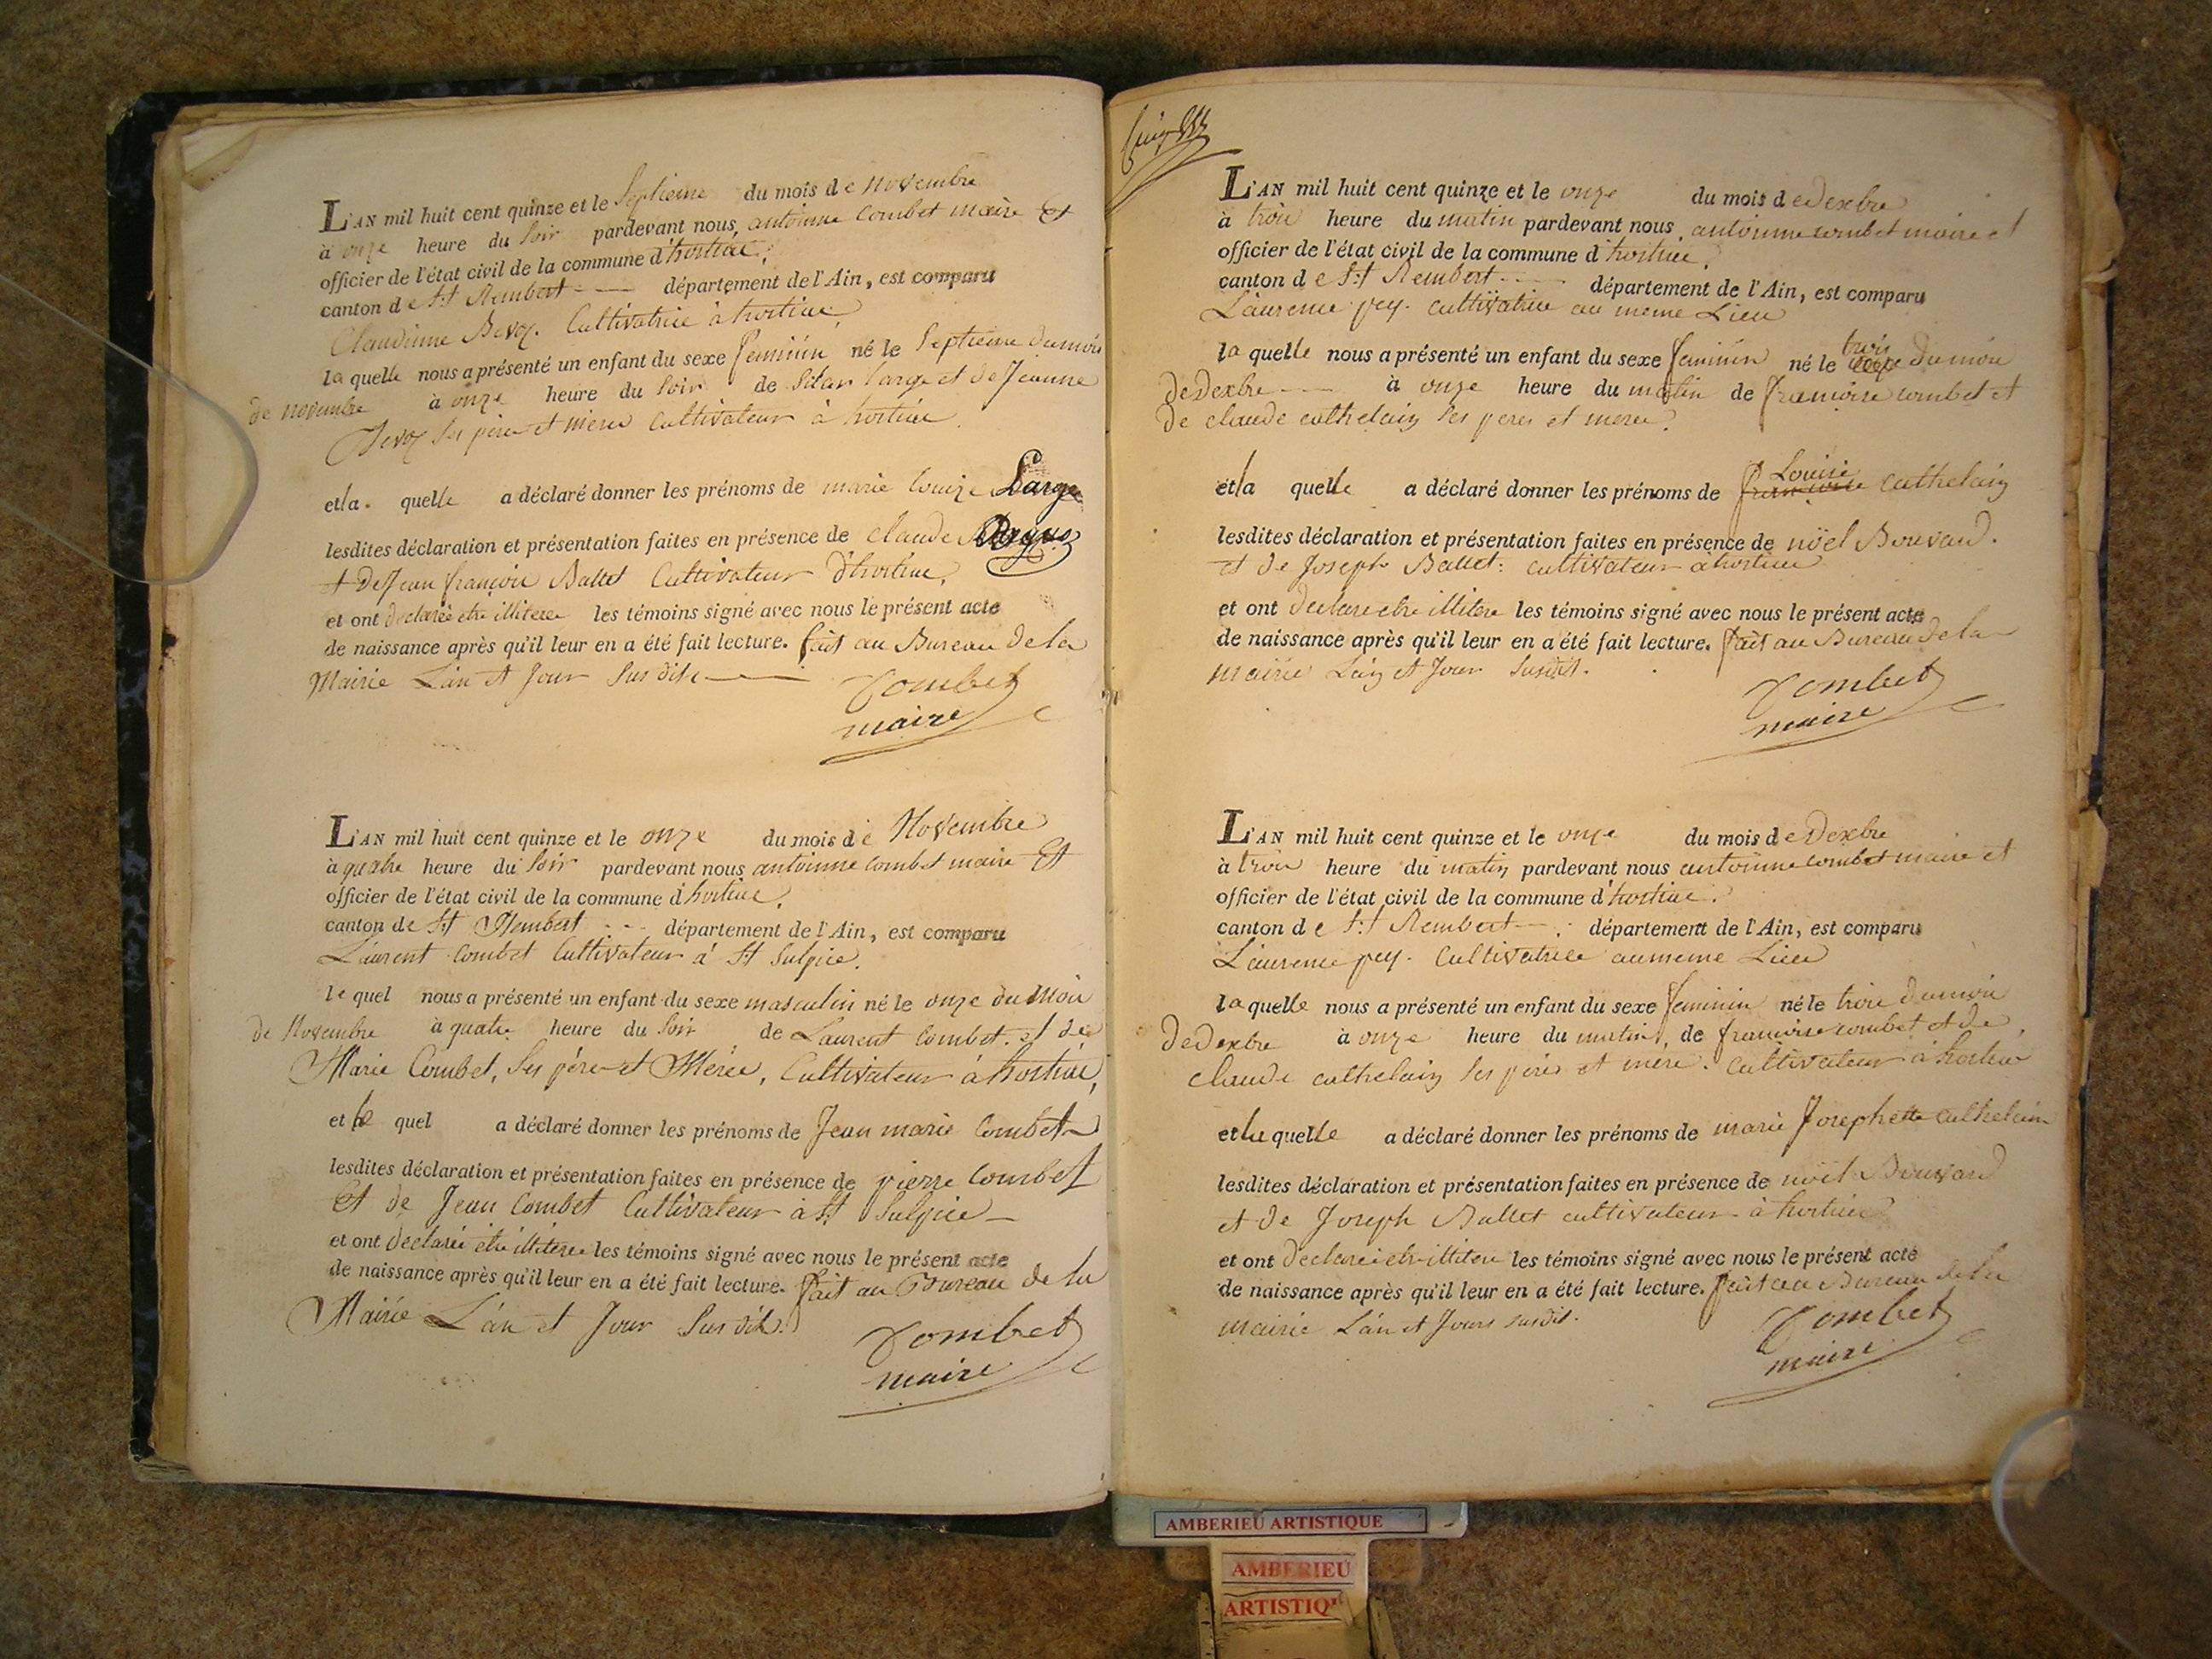 L'AN mil huit cent quinze et le Septieme du mois de novembre
à onze heure du soir pardevant nous, antoinne Combet maire et
officier de l'état civil de la commune d'hostiac,
canton de St Rembert département de l'Ain, est comparu
Claudinne Cultivatrice à hostiac,
la quelle nous a présenté un enfant du sexe feminin né le Septieme du mois
de novembre à onze heure du soir de large et de Jeanne
ses pere et mere Cultivateur à hostiac.
et la quelle a déclaré donner les prénoms de marie Louize Large
lesdites déclaration et présentation faites en présence de claude
et De Jean françois Ballet Cultivateur d'hostiac,
et ont déclaré etre illitere les témoins signé avec nous le présent acte
de naissance après qu'il leur en a été fait lecture. fait au Bureau de la
Mairie L'an et Jour Susdits
Combet
maire
L'AN mil huit cent quinze et le onze du mois de Novembre
à quatre heure du soir pardevant nous antoinne Combet maire Et
officier de l'état civil de la commune d'hostiac,
canton de St Rembert département de l'Ain, est comparu
Laurent Combet Cultivateur à St Sulpice.
le quel nous a présenté un enfant du sexe masculin né le onze du Mois
de Novembre à quatre heure du Soir de Laurent Combet et de
Marie Combet, Ses pére et Mérée, Cultivateur à hostiac,
et le quel a déclaré donner les prénoms de Jean marie Combet
lesdites déclaration et présentation faites en présence de pierre Combet
Et de Jean Combet Cultivateur à St Sulpice
et ont declaré etre illitere les témoins signé avec nous le présent acte
de naissance après qu'il leur en a été fait lecture. fait au Bureau de la
Mairie L'an et Jour Susdits.
Combet
maire
L'AN mil huit cent quinze et le onze du mois de Dexbre
à trois heure du matin pardevant nous antoinne combet maire et
officier de l'état civil de la commune d'hostiac,
canton de St Rembert département de l'Ain, est comparu
Laurence pey. cultivatrice au meme Lieu
la quelle nous a présenté un enfant du sexe feminin né le trois du mois
de Dexbre à onze heure du matin de françoise combet et
De claude cathelain ses peres et meree.
et la quelle a déclaré donner les prénoms de Louise cathelain
lesdites déclaration et présentation faites en présence de nöel Bouvard.
et de Joseph Ballet: cultivateur à hostiac
et ont declaré etre illitere les témoins signé avec nous le présent acte
de naissance après qu'il leur en a été fait lecture. fait au Bureau de la
mairie L'an et Jour susdit.
Combet
maire
L'AN mil huit cent quinze et le onze du mois de Dexbre
à trois heure du matin pardevant nous antoinne combet maire et
officier de l'état civil de la commune d'hostiac.
canton de St Rembert département de l'Ain, est comparu
Laurence pey. Cultivatrice au meme Lieu
la quelle nous a présenté un enfant du sexe feminin né le trois du mois
De Dexbre à onze heure du matin, de françoise combet et de
claude cathelain ses péres et mere. Cultivateur à hostiac
et la quelle a déclaré donner les prénoms de marie Josephette cathelain
lesdites déclaration et présentation faites en présence de noël Bouvard
et de Joseph Ballet cultivateur à hostiac
et ont declaré etre illitere les témoins signé avec nous le présent acte
de naissance après qu'il leur en a été fait lecture. fait au Bureau de la
mairie L'an et Jours susdit.
Combet
maire
AMBERIEU ARTISTIQUE
AMBERIEU
ARTISTIQ